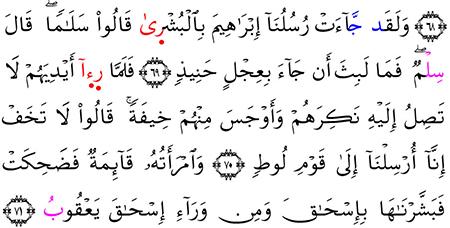 ﴿٦٨﴾ وَلَقَد جَّآءَتْ رُسُلُنَآ إِبْرَٰهِيمَ بِالْبُشْرِىٰ قَالُوا۟ سَلَٰمًا ۖ قَالَ
سِلْمٌ ۖ فَمَا لَبِثَ أَن جَآءَ بِعِجْلٍ حَنِيذٍ ﴿٦٩﴾ فَلَمَّا رِءِآ أَيْدِيَهُمْ لَا
تَصِلُ إِلَيْهِ نَكِرَهُمْ وَأَوْجَسَ مِنْهُمْ خِيفَةً ۚ قَالُوا۟ لَا تَخَفْ
إِنَّآ أُرْسِلْنَآ إِلَىٰ قَوْمِ لُوطٍ ﴿٧٠﴾ وَٱمْرَأَتُهُۥ قَآئِمَةٌ فَضَحِكَتْ
فَبَشَّرْنَٰهَا بِإِسْحَٰقَ وَمِن وَرَآءِ إِسْحَٰقَ يَعْقُوبُ ﴿٧١﴾